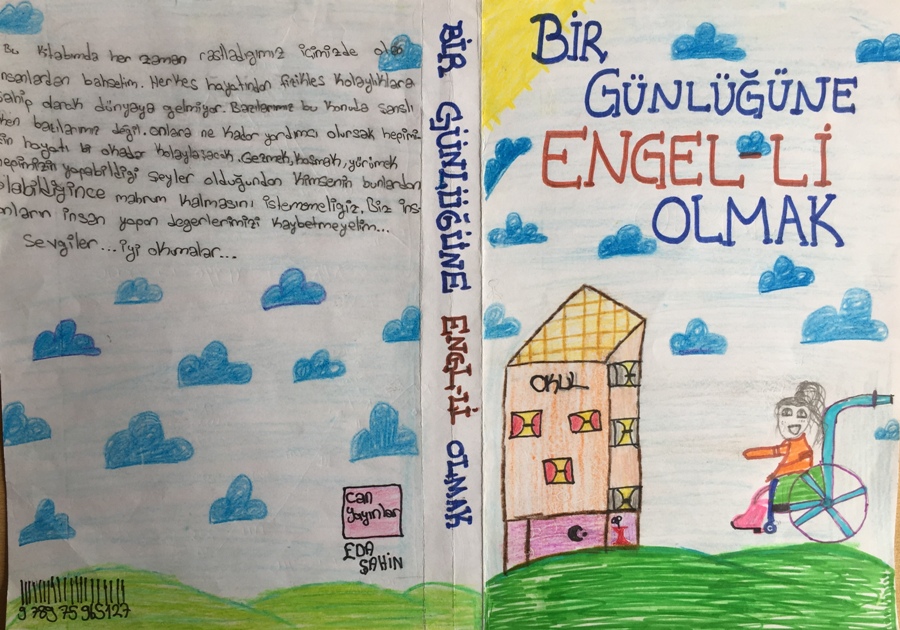 Bu kitabımda her zaman rastladığımız içimizde olan
insanlardan bahsettim. Herkes hayatından fiziksel kolaylıklara
sahip olarak dünyaya gelmiyor. Bazılarımız bu konuda şanslı
iken bazılarımız değil. onlara ne kadar yardımcı olursak hepimiz
için hayatı bi okadar kolaylaşacak. Gezmek, koşmak, yürümek
hepimizin yapabildiği şeyler olduğundan kimsenin bunlardan
olabildiğince mahrum kalmasını istememeliyiz. Biz insanların insan yapan değerlerimizi kaybetmeyelim...
Sevgiler... iyi okumalar...
can
yayınları
EDA
ŞAHİN
9 789 75 965127
BİR GÜNLÜĞÜNE ENGL-Lİ OLMAK
BİR
GÜNLÜĞÜNE
ENGEL-Lİ
OLMAK
OKUL